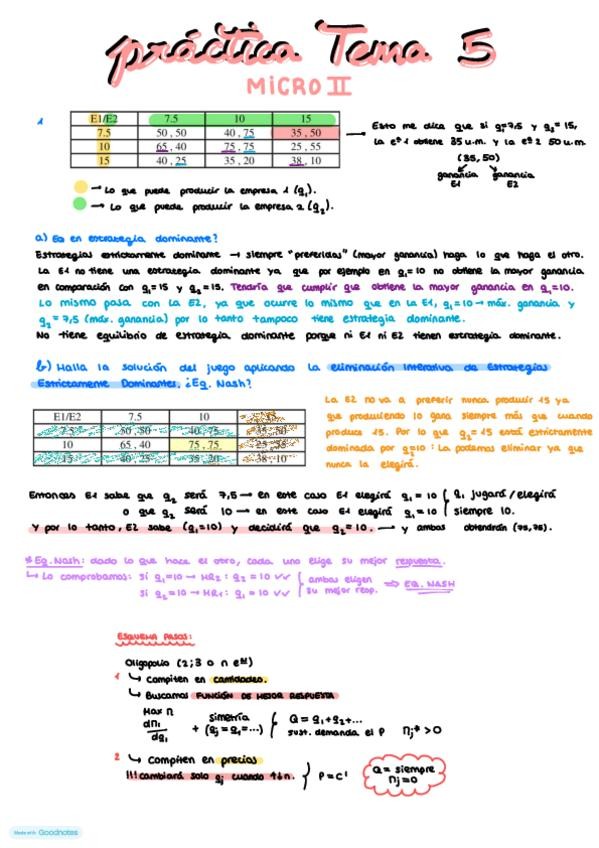 práctica Tema 5
MICRO II
1
E1/E2 7.5 10 15
7.5 50 , 50 40 , 75 35 , 50
10 65 , 40 75 , 75 25 , 55
15 40 , 25 35 , 20 38 , 10
Esto me dice que si q₁=7,5 y q₂=15,
la eª 1 obtiene 35 u.m. y la eª 2 50 u.m.
(35, 50)
ganancia E1 ganancia E2
→ Lo que puede producir la empresa 1 (q₁).
→ Lo que puede producir la empresa 2 (q₂).
a) EQ en estrategia dominante?
Estrategias estrictamente dominante → siempre "preferidas" (mayor ganancia) haga lo que haga el otro.
La E1 no tiene una estrategia dominante ya que por ejemplo en q₁=10 no obtiene la mayor ganancia
en comparación con q₁=15 y q₂=15. Tendría que cumplir que obtiene la mayor ganancia en q₁=10.
Lo mismo pasa con la E2, ya que ocurre lo mismo que en la E1, q₁=10 → máx. ganancia y
q₂=7,5 (máx. ganancia) por lo tanto tampoco tiene estrategia dominante.
No tiene equilibrio de estrategia dominante porque ni E1 ni E2 tienen estrategia dominante.
b) Halla la solución del juego aplicando la eliminación Interativa de Estrategias
Estrictamente Dominantes. ¿Eq. Nash?
E1/E2 7.5 10 15
7.5 50 , 50 40 , 75 35 , 50
10 65 , 40 75 , 75 25 , 55
15 40 , 25 35 , 20 38 , 10
La E2 no va a preferir nunca producir 15 ya
que produciendo 10 gana siempre más que cuando
produce 15. Por lo que q₂=15 está estrictamente
dominada por q₂=10: La podemos eliminar ya que
nunca la elegirá.
Entonces E1 sabe que q₂ será 7,5 → en este caso E1 elegirá q₁=10 q₁ jugará/elegirá
o que q₂ será 10 → en este caso E1 elegirá q₁=10 siempre 10.
Y por lo tanto, E2 sabe (q₁=10) y decidirá que q₂=10. → y ambas obtendrán (75,75).
*Eq. Nash: dado lo que hace el otro, cada uno elige su mejor respuesta.
↳ Lo comprobamos: si q₁=10 → MR₂: q₂=10 ✓✓ ambas eligen ⇒ EQ. NASH
si q₂=10 → MR₁: q₁=10 ✓✓ su mejor resp.
ESQUEMA PASOS:
Oligopolio (2;3 o n eªˢ)
1 ↳ Compiten en cantidades.
↳ Buscamos FUNCIÓN DE MEJOR RESPUESTA
Max Π
dΠ₁/dq₁ + simetría (q₁=q₂=...) Q=q₁+q₂+... sust. demanda el P Πⱼ*>0
2 ↳ Compiten en precios
!!! cambiará solo qⱼ cuando ↑↓n. P=C'
Q = siempre
Πⱼ=0
Made with Goodnotes